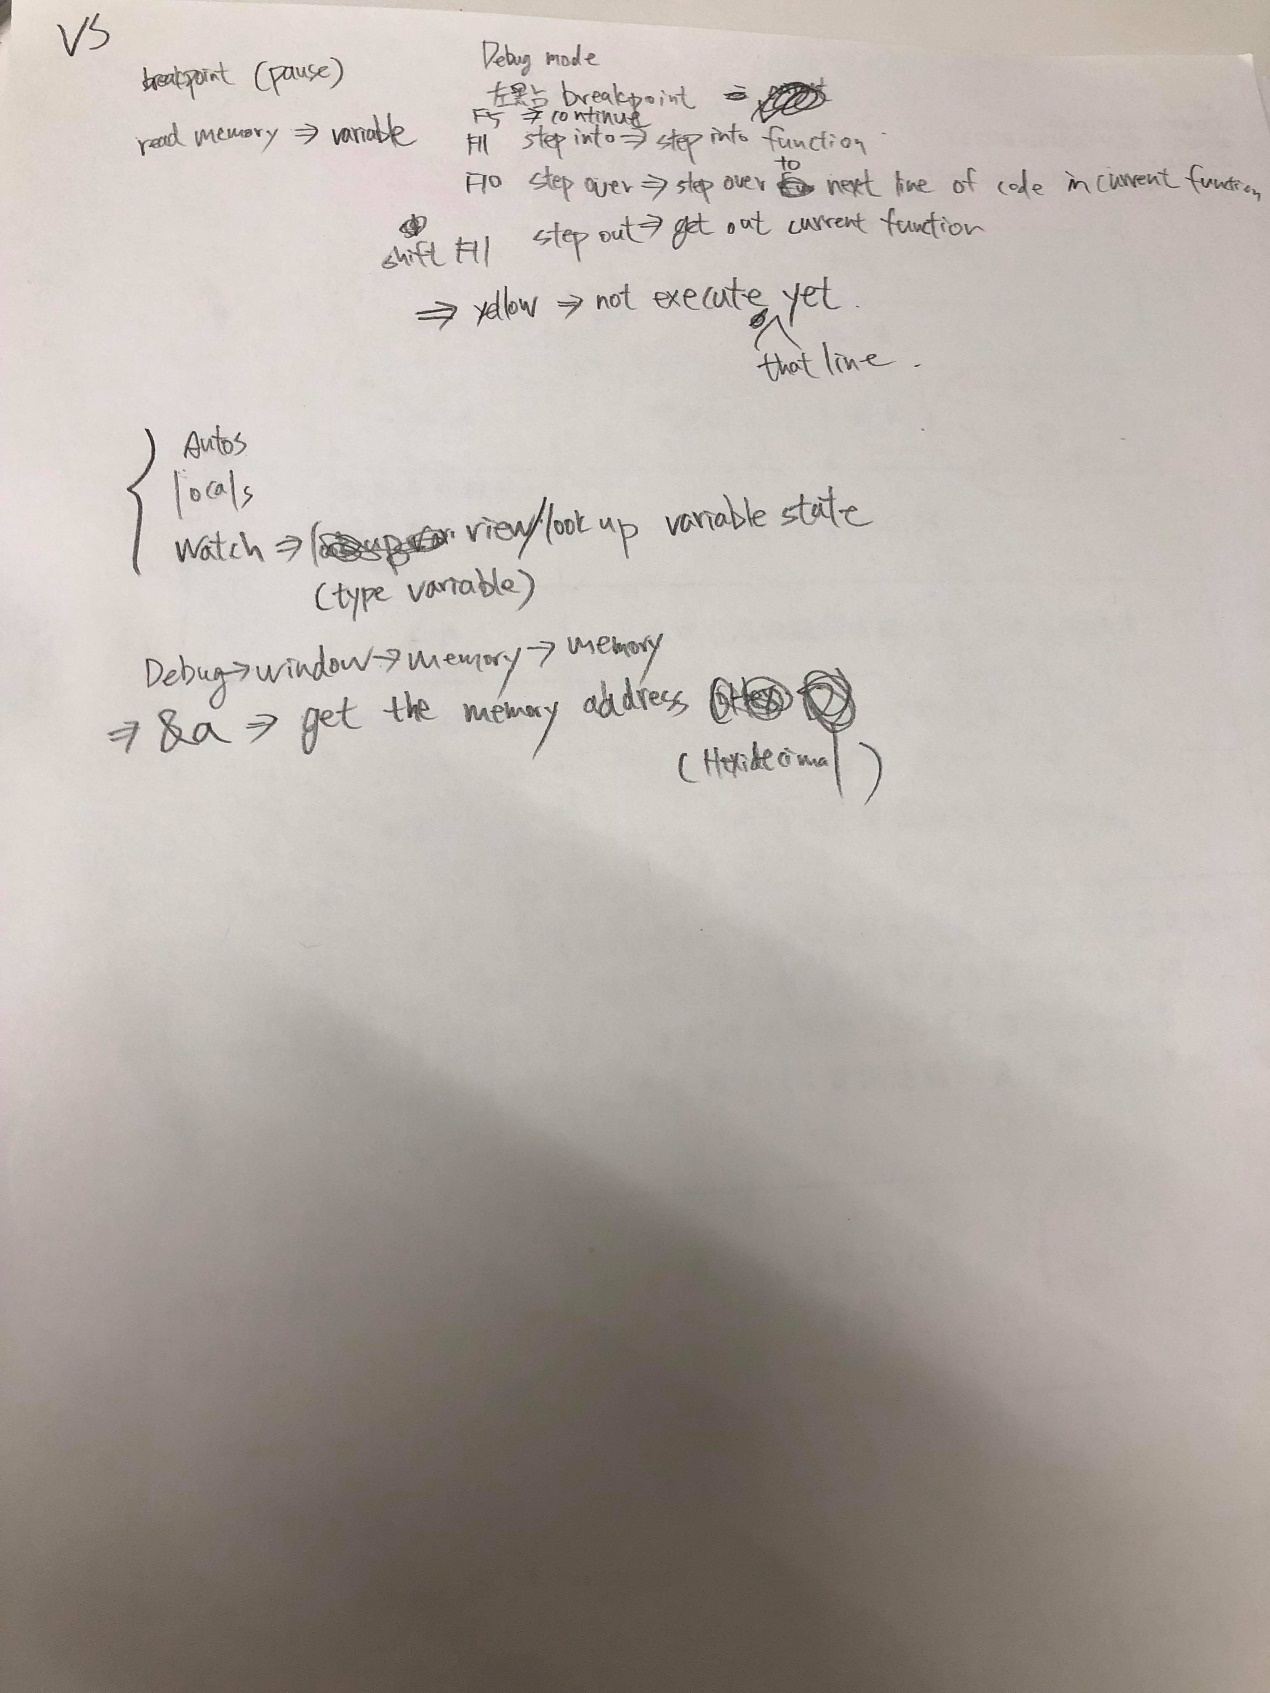 VS
breakpoint (pause)
read memory ⇒ variable
Debug mode
左黑占 breakpoint ⇒
F5 ⇒ continue
F11 step into ⇒ step into function
F10 step over ⇒ step over to next line of code in current function
shift F11 step out ⇒ get out current function
⇒ yellow ⇒ not execute yet.
that line.
Autos
locals
watch ⇒ view/look up variable state
(type variable)
Debug → window → memory → memory
⇒ &a ⇒ get the memory address
(Hexidecimal)